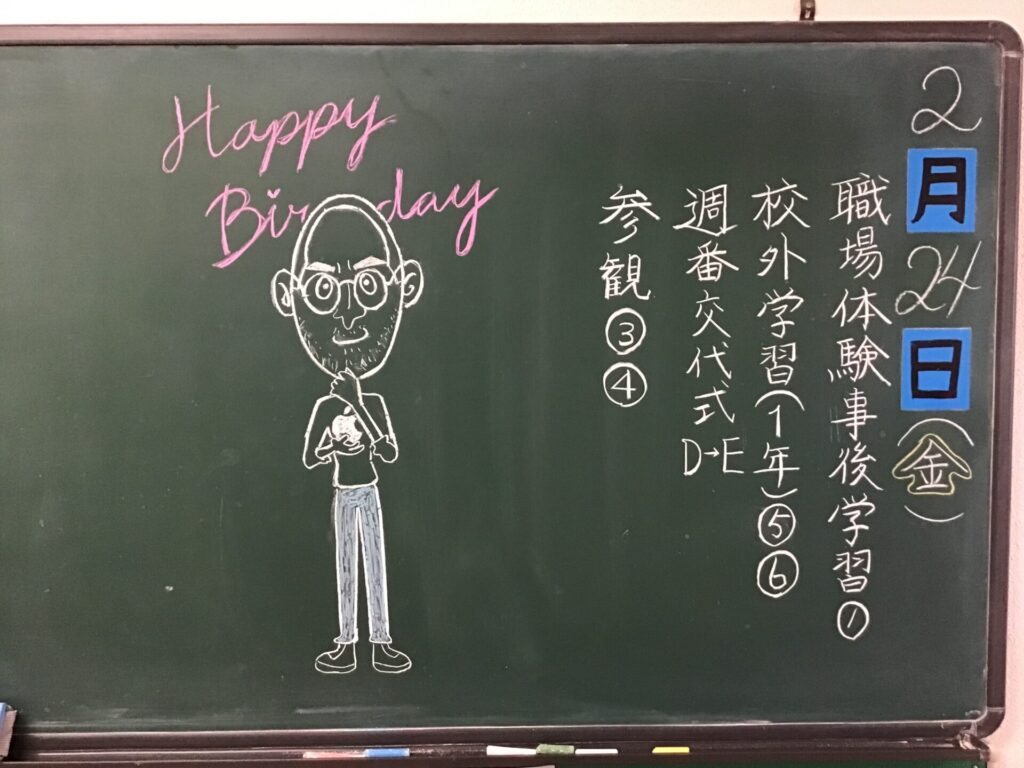 2月24日(金)
職場体験事後学習①
校外学習(1年)⑤⑥
週番交代式D→E
参観③④
Happy
Birthday